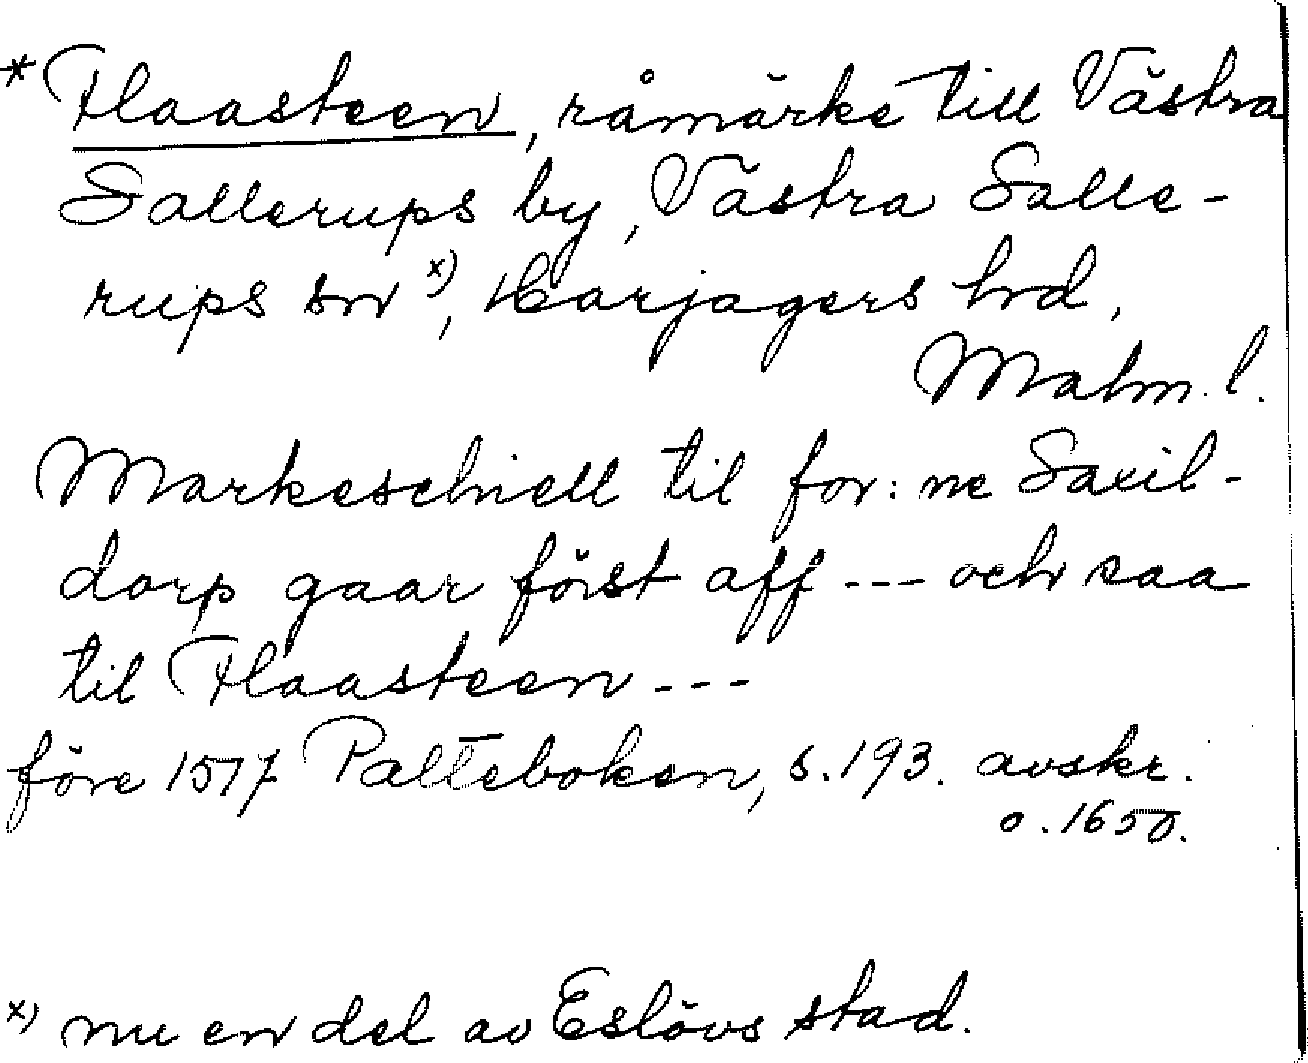 * Flaasteen, råmärke till Västra
Sallerups by, Västra Salle-
rups sn x), Harjagers hd,
Malm. l.
Markeschiell til for: ne Saxil-
dorp gaar först aff --- och saa
til Flaasteen ---
före 1517 Palteboken, s. 193. avskr.
o. 1650.
x) nu en del av Eslövs stad.